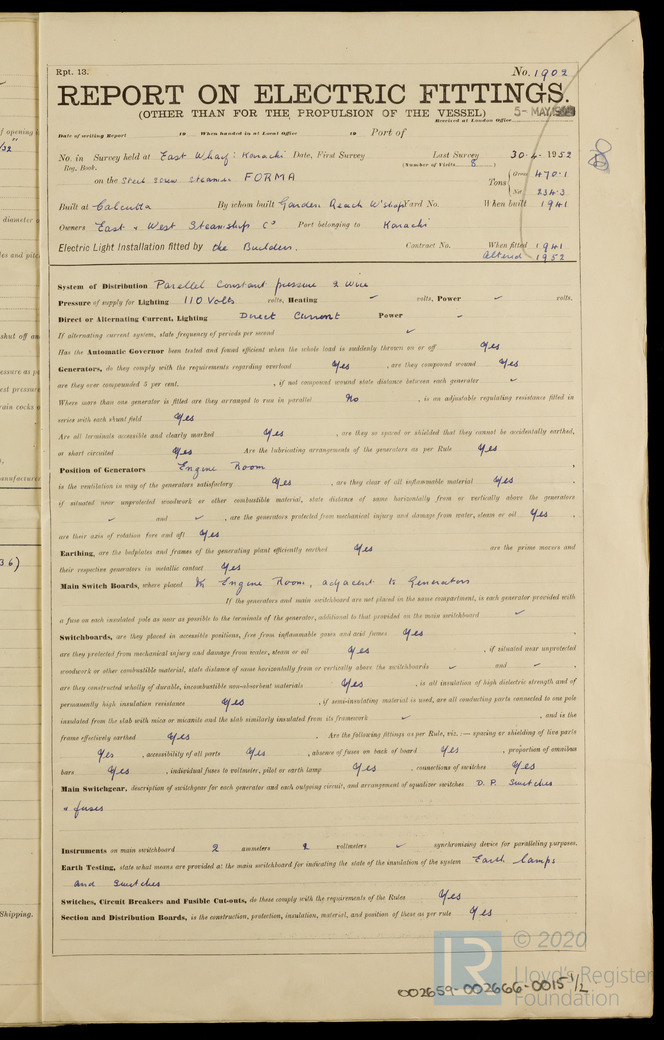 Rpt. 13.
No. 1902
REPORT ON ELECTRIC FITTINGS.
(OTHER THAN FOR THE PROPULSION OF THE VESSEL)
5 - MAY
Received at London Office
Date of writing Report 19 When handed in at Local Office 19 Port of
No. in Survey held at East Wharf: Karachi Date, First Survey Last Survey 30-4-1952
Reg. Book. (Number of Visits 8 )
on the Steel Screw Steamer FORMA Tons { Gross 470.1
Net 234.3
Built at Calcutta By whom built Garden Reach W'shops Yard No. When built 1941
Owners East & West Steamship Co Port belonging to Karachi
Electric Light Installation fitted by the Builders. Contract No. When fitted 1941
Altered 1952
System of Distribution Parallel Constant pressure 2 wire
Pressure of supply for Lighting 110 Volts volts, Heating ✓ volts, Power ✓ volts.
Direct or Alternating Current, Lighting Direct Current Power ✓
If alternating current system, state frequency of periods per second ✓
Has the Automatic Governor been tested and found efficient when the whole load is suddenly thrown on or off Yes
Generators, do they comply with the requirements regarding overload Yes , are they compound wound Yes
are they over compounded 5 per cent. , if not compound wound state distance between each generator ✓
Where more than one generator is fitted are they arranged to run in parallel No , is an adjustable regulating resistance fitted in
series with each shunt field Yes
Are all terminals accessible and clearly marked Yes , are they so spaced or shielded that they cannot be accidentally earthed,
or short circuited Yes Are the lubricating arrangements of the generators as per Rule Yes
Position of Generators Engine Room ,
is the ventilation in way of the generators satisfactory Yes , are they clear of all inflammable material Yes ,
if situated near unprotected woodwork or other combustible material, state distance of same horizontally from or vertically above the generators
✓ and ✓ , are the generators protected from mechanical injury and damage from water, steam or oil Yes ,
are their axis of rotation fore and aft Yes
Earthing, are the bedplates and frames of the generating plant efficiently earthed Yes are the prime movers and
their respective generators in metallic contact Yes
Main Switch Boards, where placed In Engine Room, adjacent to Generators
If the generators and main switchboard are not placed in the same compartment, is each generator provided with
a fuse on each insulated pole as near as possible to the terminals of the generator, additional to that provided on the main switchboard ✓
Switchboards, are they placed in accessible positions, free from inflammable gases and acid fumes Yes ,
are they protected from mechanical injury and damage from water, steam or oil Yes , if situated near unprotected
woodwork or other combustible material, state distance of same horizontally from or vertically above the switchboards ✓ and ✓ ,
are they constructed wholly of durable, incombustible non-absorbent materials Yes , is all insulation of high dielectric strength and of
permanently high insulation resistance Yes , if semi-insulating material is used, are all conducting parts connected to one pole
insulated from the slab with mica or micanite and the slab similarly insulated from its framework ✓ , and is the
frame effectively earthed Yes . Are the following fittings as per Rule, viz. :— spacing or shielding of live parts
Yes , accessibility of all parts Yes , absence of fuses on back of board Yes , proportion of omnibus
bars Yes , individual fuses to voltmeter, pilot or earth lamp Yes , connections of switches Yes
Main Switchgear, description of switchgear for each generator and each outgoing circuit, and arrangement of equalizer switches D.P. Switches
& fuses
Instruments on main switchboard 2 ammeters 2 voltmeters ✓ synchronising device for paralleling purposes.
Earth Testing, state what means are provided at the main switchboard for indicating the state of the insulation of the system Earth lamps
and Switches
Switches, Circuit Breakers and Fusible Cut-outs, do these comply with the requirements of the Rules Yes
Section and Distribution Boards, is the construction, protection, insulation, material, and position of these as per rule Yes
LR © 2020
Lloyd's Register
Foundation
002659-002666-0015 1/2
Shipping.